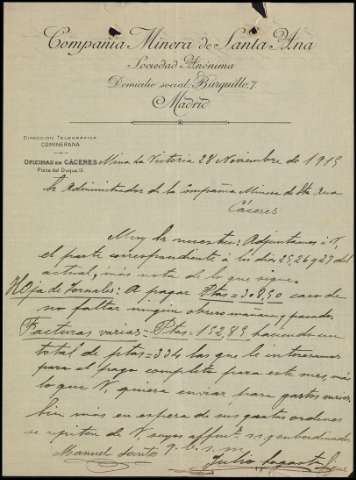 Compañia Minera de Santa Ana
Sociedad Anónima
Domicilio social: Barquillo, 7
Madrid
DIRECCION TELEGRÁFICA
COMINERANA
OFICINAS EN CÁCERES
Plaza del Duque,
Mina La Victoria 28 Noviembre de 191
Sr Administrador de la Compañia Minera de Sta Ana
Cáceres
Muy Sr. nuestro: Adjuntamos á V,
el parte correspondiente á los dias 25, 26 y 27 del
actual, más nota de lo que sigue.
Hoja de Jornales: A pagar Ptas = caso de
no faltar ningun obrero mañana, y pasado
Facturas varias = Ptas = 152,85 haciendo un
total de ptas = las que le interesamos
para el pago completo para este mes, más
lo que V, quiera enviar para gastos
bien más en espera de sus gratas ordenes
se repiten de V, suyos affmos. s.s y subordinados
q. b. s. m.
Manuel Santos
Julio